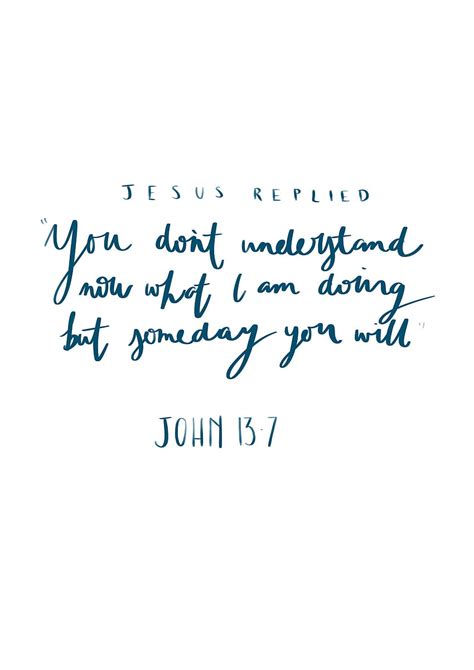 JESUS REPLIED
"You don't understand
now what I am doing
but someday you will"
JOHN 13·7